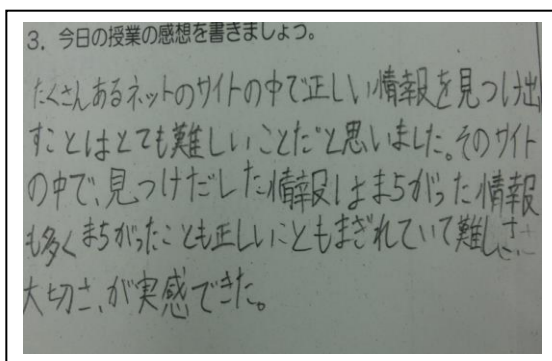 3. 今日の授業の感想を書きましょう。
たくさんあるネットのサイトの中で正しい情報を見つけ出
すことはとても難しいことだと思いました。そのサイト
の中で、見つけだした情報はまちがった情報
も多くまちがったことも正しいこともまぎれていて難しさ、
大切さ、が実感できた。